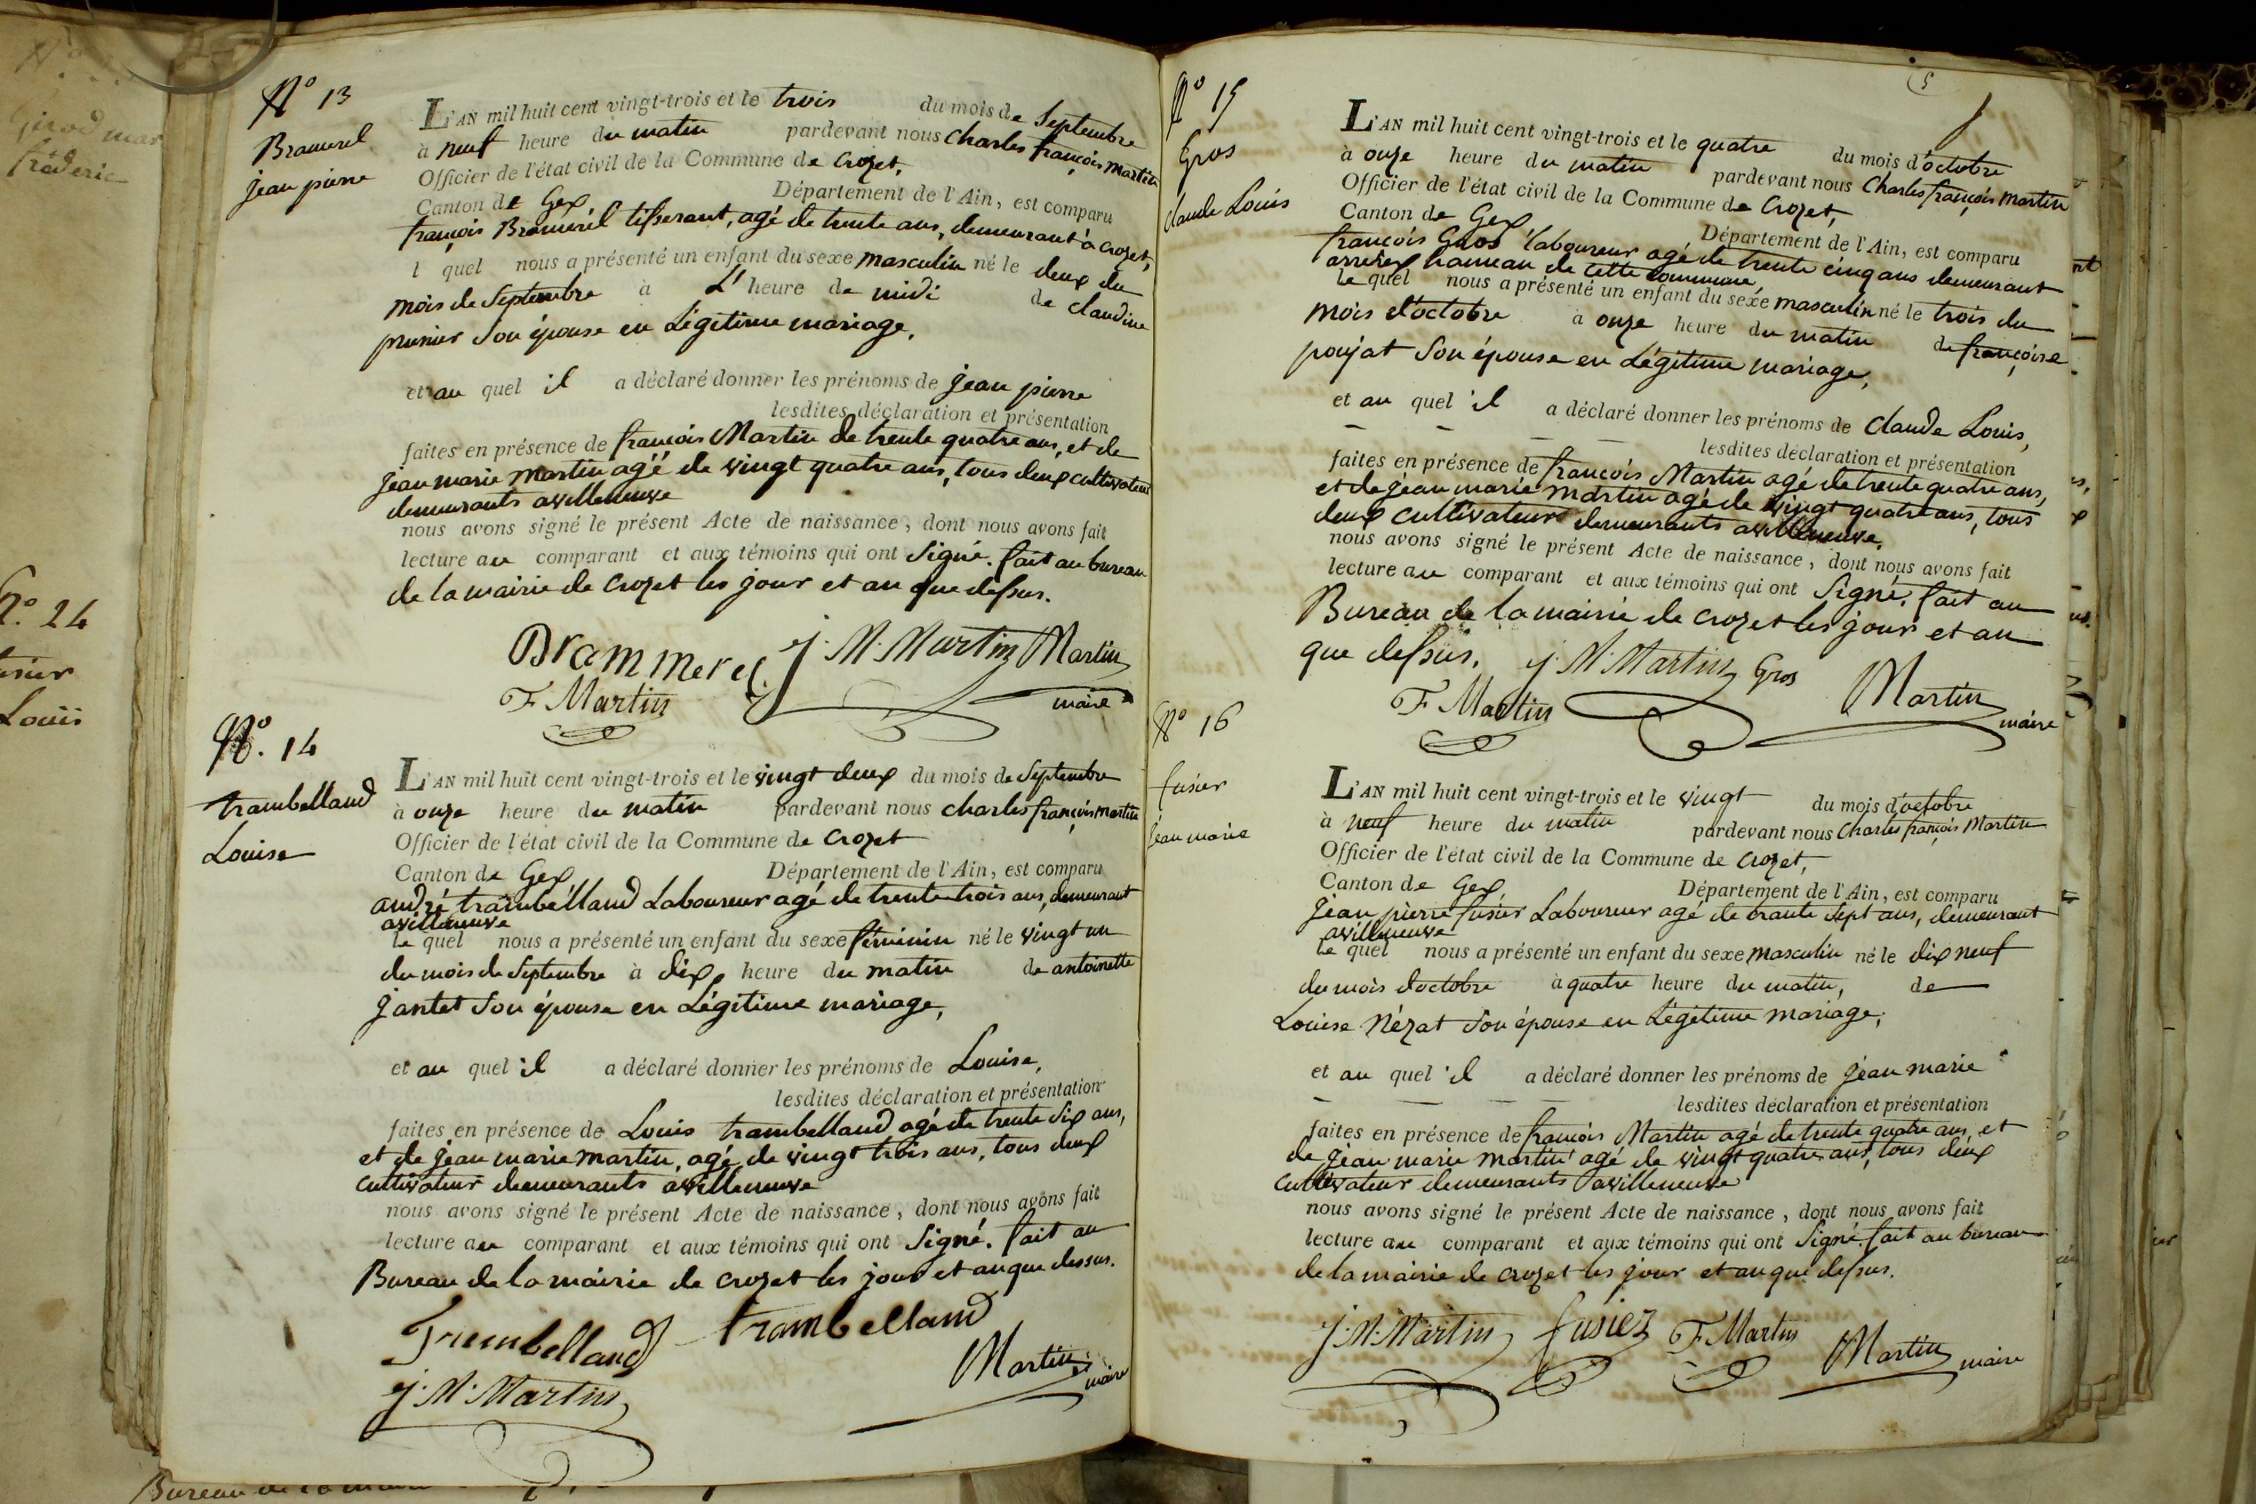 N.° 13
Bramerel
jean pierre
L'AN mil huit cent vingt-trois et le trois du mois de Septembre
à neuf heure du matin pardevant nous Charles françois Martin
Officier de l'état civil de la Commune de Crozet,
Canton de Gex, Département de l'Ain, est comparu
françois Bramerél tisserant, agé de trente ans, demeurant à Crozet,
l quel nous a présenté un enfant du sexe masculin né le deux du
mois de Septembre à L' heure de midi de claudine
prunier Son épouse en Légitime mariage,
et au quel il a déclaré donner les prénoms de jean pierre
lesdites déclaration et présentation
faites en présence de françois Martin de trente quatre ans, et de
jean marie Martin agé de vingt quatre ans, tous deux cultivateur
demeurants avilleneuve
nous avons signé le présent Acte de naissance, dont nous avons fait
lecture au comparant et aux témoins qui ont Signé. fait au bureau
de la mairie de Crozet les jour et an que dessus.
Brammerel J. M. Martin Martin
F Martin maire
N.° 14
trambelland
Louise
L'AN mil huit cent vingt-trois et le vingt deux du mois de Septembre
à onze heure du matin pardevant nous charles françois Martin
Officier de l'état civil de la Commune de Crozet
Canton de Gex Département de l'Ain, est comparu
andré trambélland Laboureur agé de trente trois ans, demeurant
avilleneuve
le quel nous a présenté un enfant du sexe féminin né le vingt un
du mois de Septembre à dix heure du matin de antoinette
jantet Son épouse en Légitime mariage,
et au quel il a déclaré donner les prénoms de Louise,
lesdites déclaration et présentation
faites en présence de Louis trambelland agé de trente Six ans,
et de jean marie martin, agé de vingt trois ans, tous deux
cultivateur demeurants avilleneuve
nous avons signé le présent Acte de naissance, dont nous avons fait
lecture au comparant et aux témoins qui ont Signé. fait au
Bureau de la mairie de crozet les jour et an que dessus.
Trembelland trambelland
J. M. Martin Martin maire
5
N° 15
Gros
claude Louis
L'AN mil huit cent vingt-trois et le quatre du mois d'octobre
à onze heure du matin pardevant nous Charles françois Martin
Officier de l'état civil de la Commune de Crozet,
Canton de Gex Département de l'Ain, est comparu
françois Gros laboureur agé de trente cinq ans demeurant
hameau de cette commune,
le quel nous a présenté un enfant du sexe masculin né le trois du
mois d'octobre à onze heure du matin de françoise
poujat Son épouse en Légitime mariage,
et au quel il a déclaré donner les prénoms de Claude Louis,
lesdites déclaration et présentation
faites en présence de françois Martin agé de trente quatre ans,
et de jean marie martin agé de vingt quatre ans, tous
deux cultivateur demeurants avilleneuve,
nous avons signé le présent Acte de naissance, dont nous avons fait
lecture au comparant et aux témoins qui ont Signé. fait au
Bureau de la mairie de crozet les jour et an
que dessus. J. M. Martin Gros Martin
F Martin maire
N° 16
fusier
jean marie
L'AN mil huit cent vingt-trois et le vingt du mois d'octobre
à neuf heure du matin pardevant nous Charles françois Martin
Officier de l'état civil de la Commune de Crozet,
Canton de Gex, Département de l'Ain, est comparu
jean pierre fusier Laboureur agé de trante Sept ans, demeurant
avilleneuve
le quel nous a présenté un enfant du sexe masculin né le dix neuf
du mois d'octobre à quatre heure du matin, de
Louise Nézat Son épouse en Légitime mariage,
et au quel il a déclaré donner les prénoms de jean marie
lesdites déclaration et présentation
faites en présence de françois Martin agé de trente quatre ans, et
de jean marie martin agé de vingt quatre ans, tous deux
cultivateur demeurants avilleneuve
nous avons signé le présent Acte de naissance, dont nous avons fait
lecture au comparant et aux témoins qui ont Signé. fait au bureau
de la mairie de crozet les jour et an que dessus.
J. M. Martin fusiez F Martin Martin maire